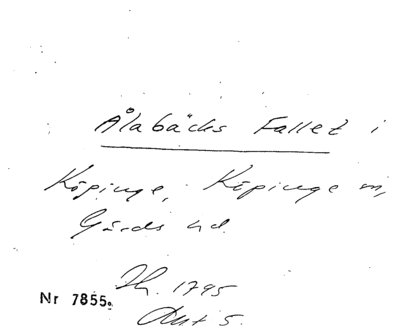 Ålabäcks Fallet i
Köpinge, Köpinge sn,
Gärds hd.
Th. 1795
Akt 5.
Nr 7855.